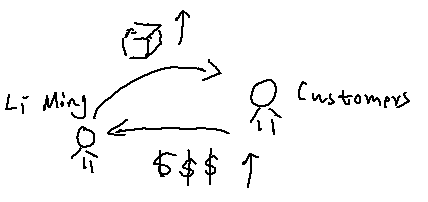 Li Ming
Customers
$$$